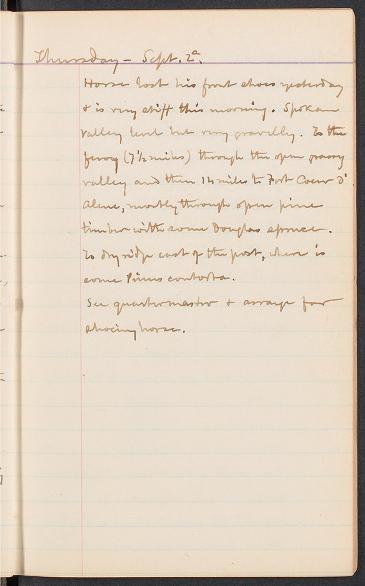 Thursday - Sept. 2d
Horse lost his front shoes yesterday
& is very stiff this morning. Spokane
valley level but very gravelly. To the
ferry (7½ miles) through the open grassy
valley and then 14 miles to Fort Coeur d'
Alene, mostly through open pine
timber with some Douglas spruce.
To dry ridge east of the post, where is
some Pinus contorta.
See quartermaster & arrange for
shoeing horse.